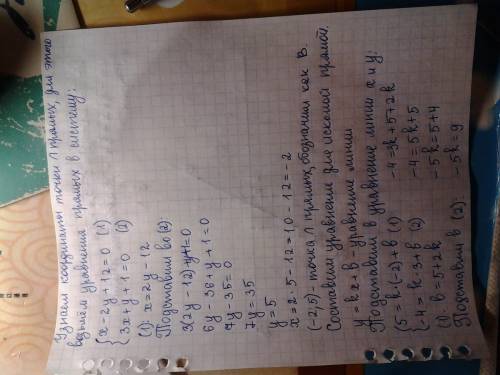 Узнаем координаты точки ∩ прямых, для этого
возьмём уравнения прямых в систему:
{x - 2y + 12 = 0 (1)
{3x + y + 1 = 0 (2)
(1): x = 2y - 12
Подставим во (2):
3(2y - 12) + y + 1 = 0
6y - 36 + y + 1 = 0
7y - 35 = 0
7y = 35
y = 5
x = 2·5 - 12 = 10 - 12 = -2
(-2;5) - точка ∩ прямых, обозначим как B.
Составим уравнение для искомой прямой.
y = kx + b - уравнение линии
Подставим в уравнение линии x и y:
{5 = k·(-2) + b (1)
{-4 = k·3 + b (2)
(1): b = 5 + 2k
Подставим в (2):
-4 = 3k + 5 + 2k
-4 = 5k + 5
-5k = 5 + 4
-5k = 9